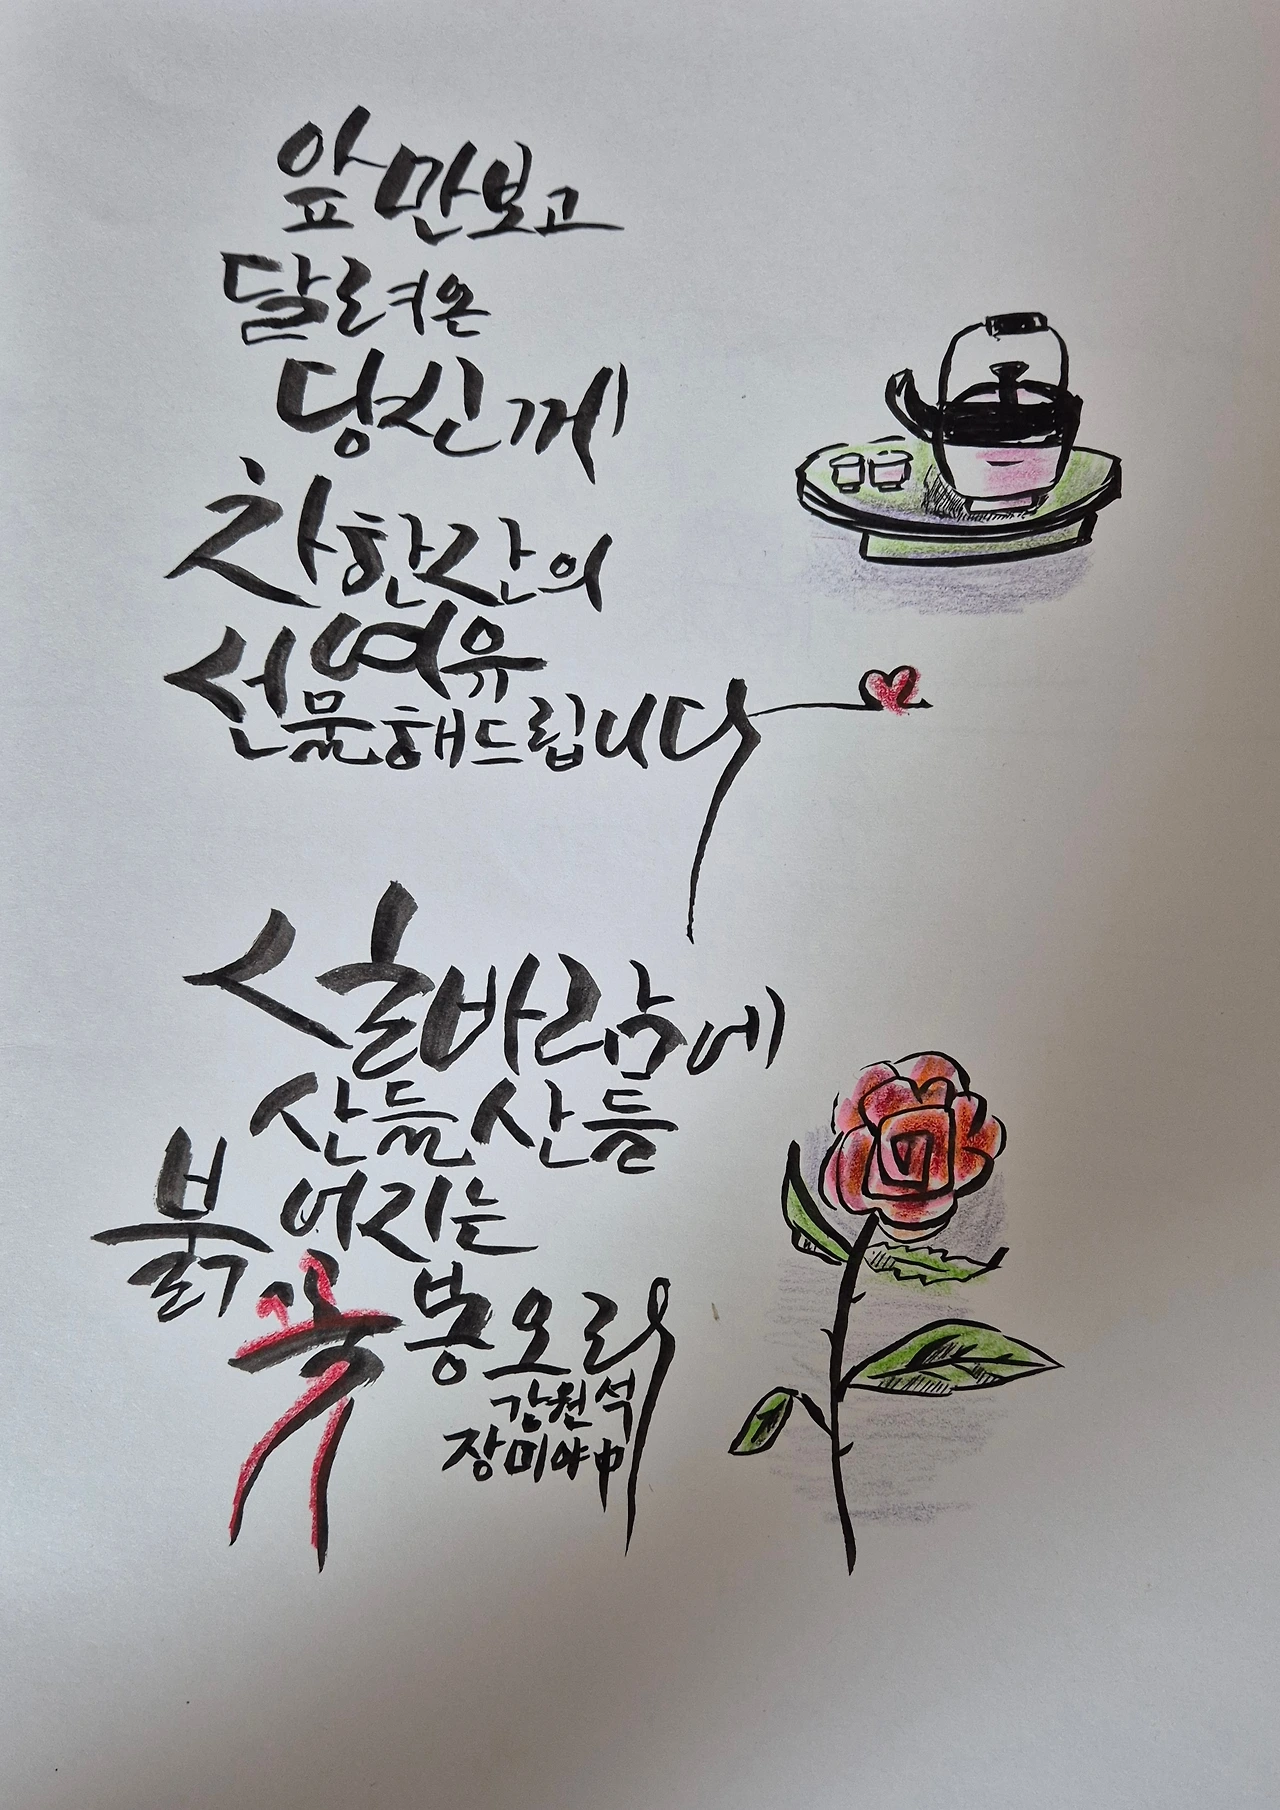 앞만보고
달려온
당신께
차한잔의
여유
선물해드립니다
실바람에
산들산들
붉어지는
꽃봉오리
강원석
장미야中